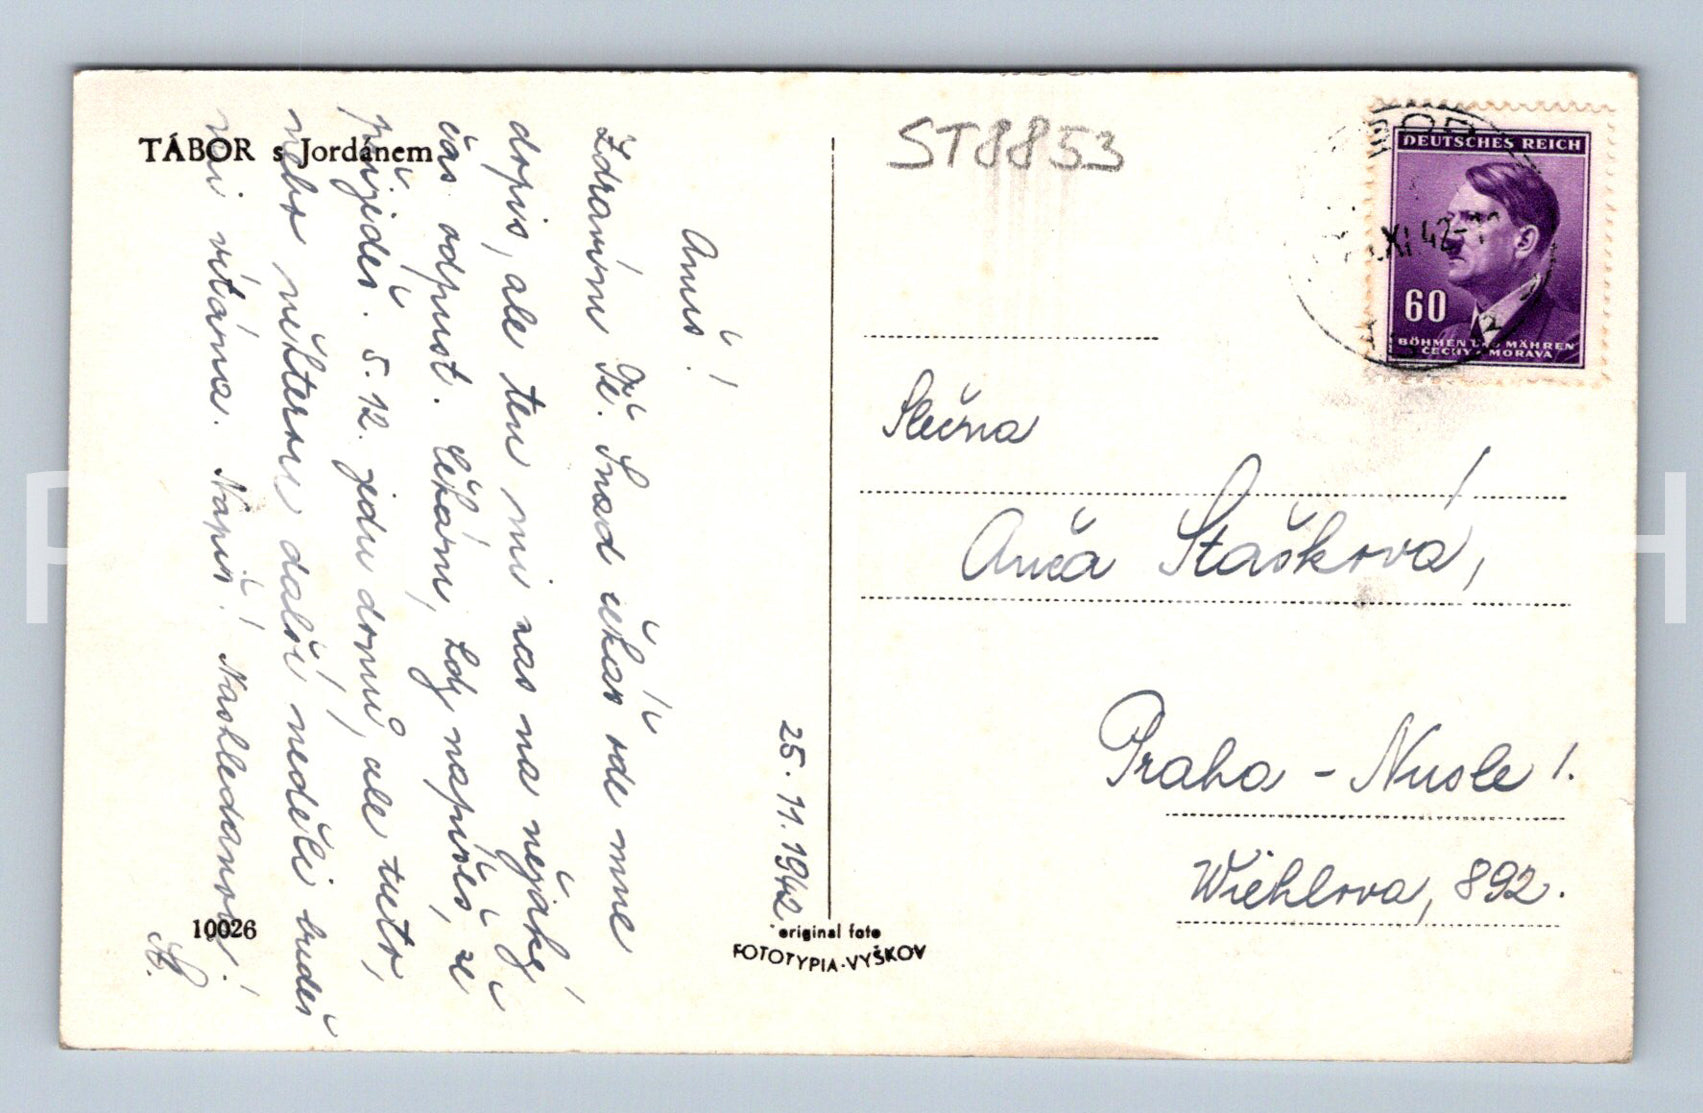 TÁBOR s Jordánem
Amiš!
Zdravím Tě. Snad čekáš ode mne
dopis, ale ten mi zas na nějaký
čas odpusť. Čekám, kdy napíšeš, že
přijedeš. 5. 12. jedu domů, ale tuto,
nebo některou další neděli budeš
mi vítána. Napiš! Nashledanou!
A.
25. 11. 1942
10026
original foto
FOTOTYPIA-VYŠKOV
ST8853
DEUTSCHES REICH
60
BÖHMEN UND MÄHREN
ČECHY A MORAVA
XI 42
Slečna
Anča Stašková,
Praha - Nusle I.
Wiehlova, 892.
P H